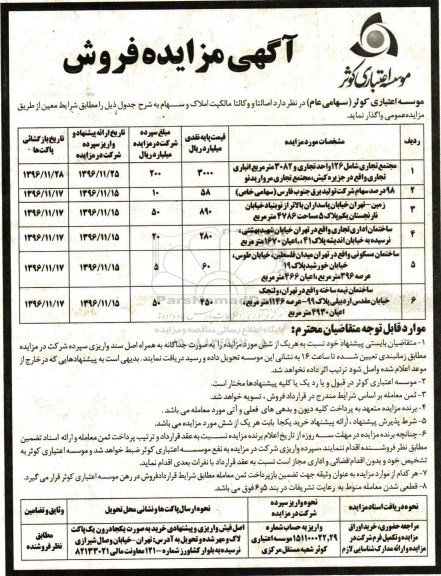 آگهی مزایده فروش
موسسه اعتباری کوثر
موسسه اعتباری کوثر (سهامی عام) در نظر دارد اصالتا و وکالتا مالکیت املاک و سهام به شرح جدول ذیل را مطابق شرایط معین از طریق
مزایده عمومی واگذار نماید.
ردیف مشخصات مورد مزایده قیمت پایه نقدی میلیارد ریال مبلغ سپرده شرکت در مزایده میلیارد ریال تاریخ ارائه پیشنهاد و واریز سپرده شرکت در مزایده تاریخ بازگشائی پاکت‌ها
۱ مجتمع تجاری شامل ۱۲۶ واحد تجاری و ۳۰۸۲ متر مربع انباری تجاری واقع در جزیره کیش، مجتمع تجاری مروارید نو ۳۰۰۰ ۲۰۰ ۱۳۹۶/۱۱/۲۵ ۱۳۹۶/۱۱/۲۸
۲ ۹۸ درصد سهام شرکت تولید برق جنوب فارس (سهامی خاص) ۵۸ ۱۰ ۱۳۹۶/۱۱/۱۵ ۱۳۹۶/۱۱/۱۷
۳ زمین - تهران خیابان پاسداران بالاتر از نوبنیاد خیابان نارنجستان یکم پلاک ۵ مساحت ۴۷۸۶ متر مربع ۸۹۰ ۵۰ ۱۳۹۶/۱۱/۱۵ ۱۳۹۶/۱۱/۱۷
۴ ساختمان اداری تجاری واقع در تهران خیابان شهید بهشتی، نرسیده به خیابان اندیشه پلاک ۴۱، اعیان ۱۶۷۰ متر مربع ۲۸۰ ۲۰ ۱۳۹۶/۱۱/۱۵ ۱۳۹۶/۱۱/۱۷
۵ ساختمان مسکونی واقع در تهران میدان فلسطین، خیابان طوس، خیابان خورشید پلاک ۱۹ عرصه ۳۹۶ متر مربع، اعیان ۴۶۶ متر مربع ۶۰ ۵ ۱۳۹۶/۱۱/۱۵ ۱۳۹۶/۱۱/۱۷
۶ ساختمان نیمه ساخته واقع در تهران، ولنجک خیابان مقدس اردبیلی پلاک ۹۰- عرصه ۱۱۴۶ متر مربع، اعیان ۴۹۳۰ متر مربع ۴۵۰ ۵۰ ۱۳۹۶/۱۱/۱۵ ۱۳۹۶/۱۱/۱۷
موارد قابل توجه متقاضیان محترم:
۱- متقاضیان بایستی پیشنهاد خود نسبت به هر یک از شش مورد مزایده را به صورت جداگانه به همراه اصل سند واریزی سپرده شرکت در مزایده
مطابق زمانبندی تعیین شده تا ساعت ۱۶ به نشانی این موسسه تحویل داده و رسید دریافت نمایند. بدیهی است به پیشنهادهایی که در خارج از
موعد اعلام شده واصل شود ترتیب اثر داده نخواهد شد.
۲- موسسه اعتباری کوثر در قبول و یا رد یک یا کلیه پیشنهادها مختار است.
۳- ثمن معامله بر اساس شرایط مندرج در قرارداد فروش، تسویه خواهد شد.
۴- برنده مزایده متعهد به پرداخت کلیه دیون و بدهی های فعلی و آتی مورد معامله می باشد.
۵- شرط پذیرش پیشنهاد، ارائه پیشنهاد خرید یکجا بابت هر یک از شش مورد مزایده می باشد.
۶- چنانچه برنده مزایده در مهلت سه روزه از تاریخ اعلام برنده مزایده نسبت به عقد قرارداد و ترتیب پرداخت ثمن معامله و ارائه اسناد تضمین
مطابق نظر فروشنده اقدام ننمایند، سپرده واریزی شرکت در مزایده به نفع موسسه اعتباری کوثر ضبط خواهد شد و موسسه اعتباری کوثر به
تشخیص خود و بدون اقدام قضائی و اداری مجاز است نسبت به عقد قرارداد با نفرات بعدی اقدام نماید.
۷- هر کدام از موارد مزایده به عنوان وثیقه جهت تضمین بازپرداخت ثمن معامله مطابق شرایط قرارداد فروش در رهن موسسه اعتباری کوثر قرار می گیرد.
۸- قطعی شدن معامله منوط به رعایت تشریفات در بند ۵ و ۶ فوق می باشد.
نحوه دریافت اسناد مزایده نحوه واریز سپرده شرکت در مزایده نحوه ارسال پاکت ها و نشانی محل تحویل وثایق و تضامین
مراجعه حضوری، خرید اوراق مزایده و تکمیل فرم شرکت در مزایده و ارائه مدارک شناسایی لازم واریز به حساب شماره موسسه اعتباری کوثر شعبه مستقل مرکزی اصل فیش واریزی و پیشنهادی خرید به صورت یکجا درون یک پاکت لاک و مهر شده و تحویل به آدرس: تهران - خیابان وصال شیرازی نرسیده به بلوار کشاورز شماره ۱۲۱- معاونت مالی ۸۲۱۳۳۰۲۱ مطابق نظر فروشنده